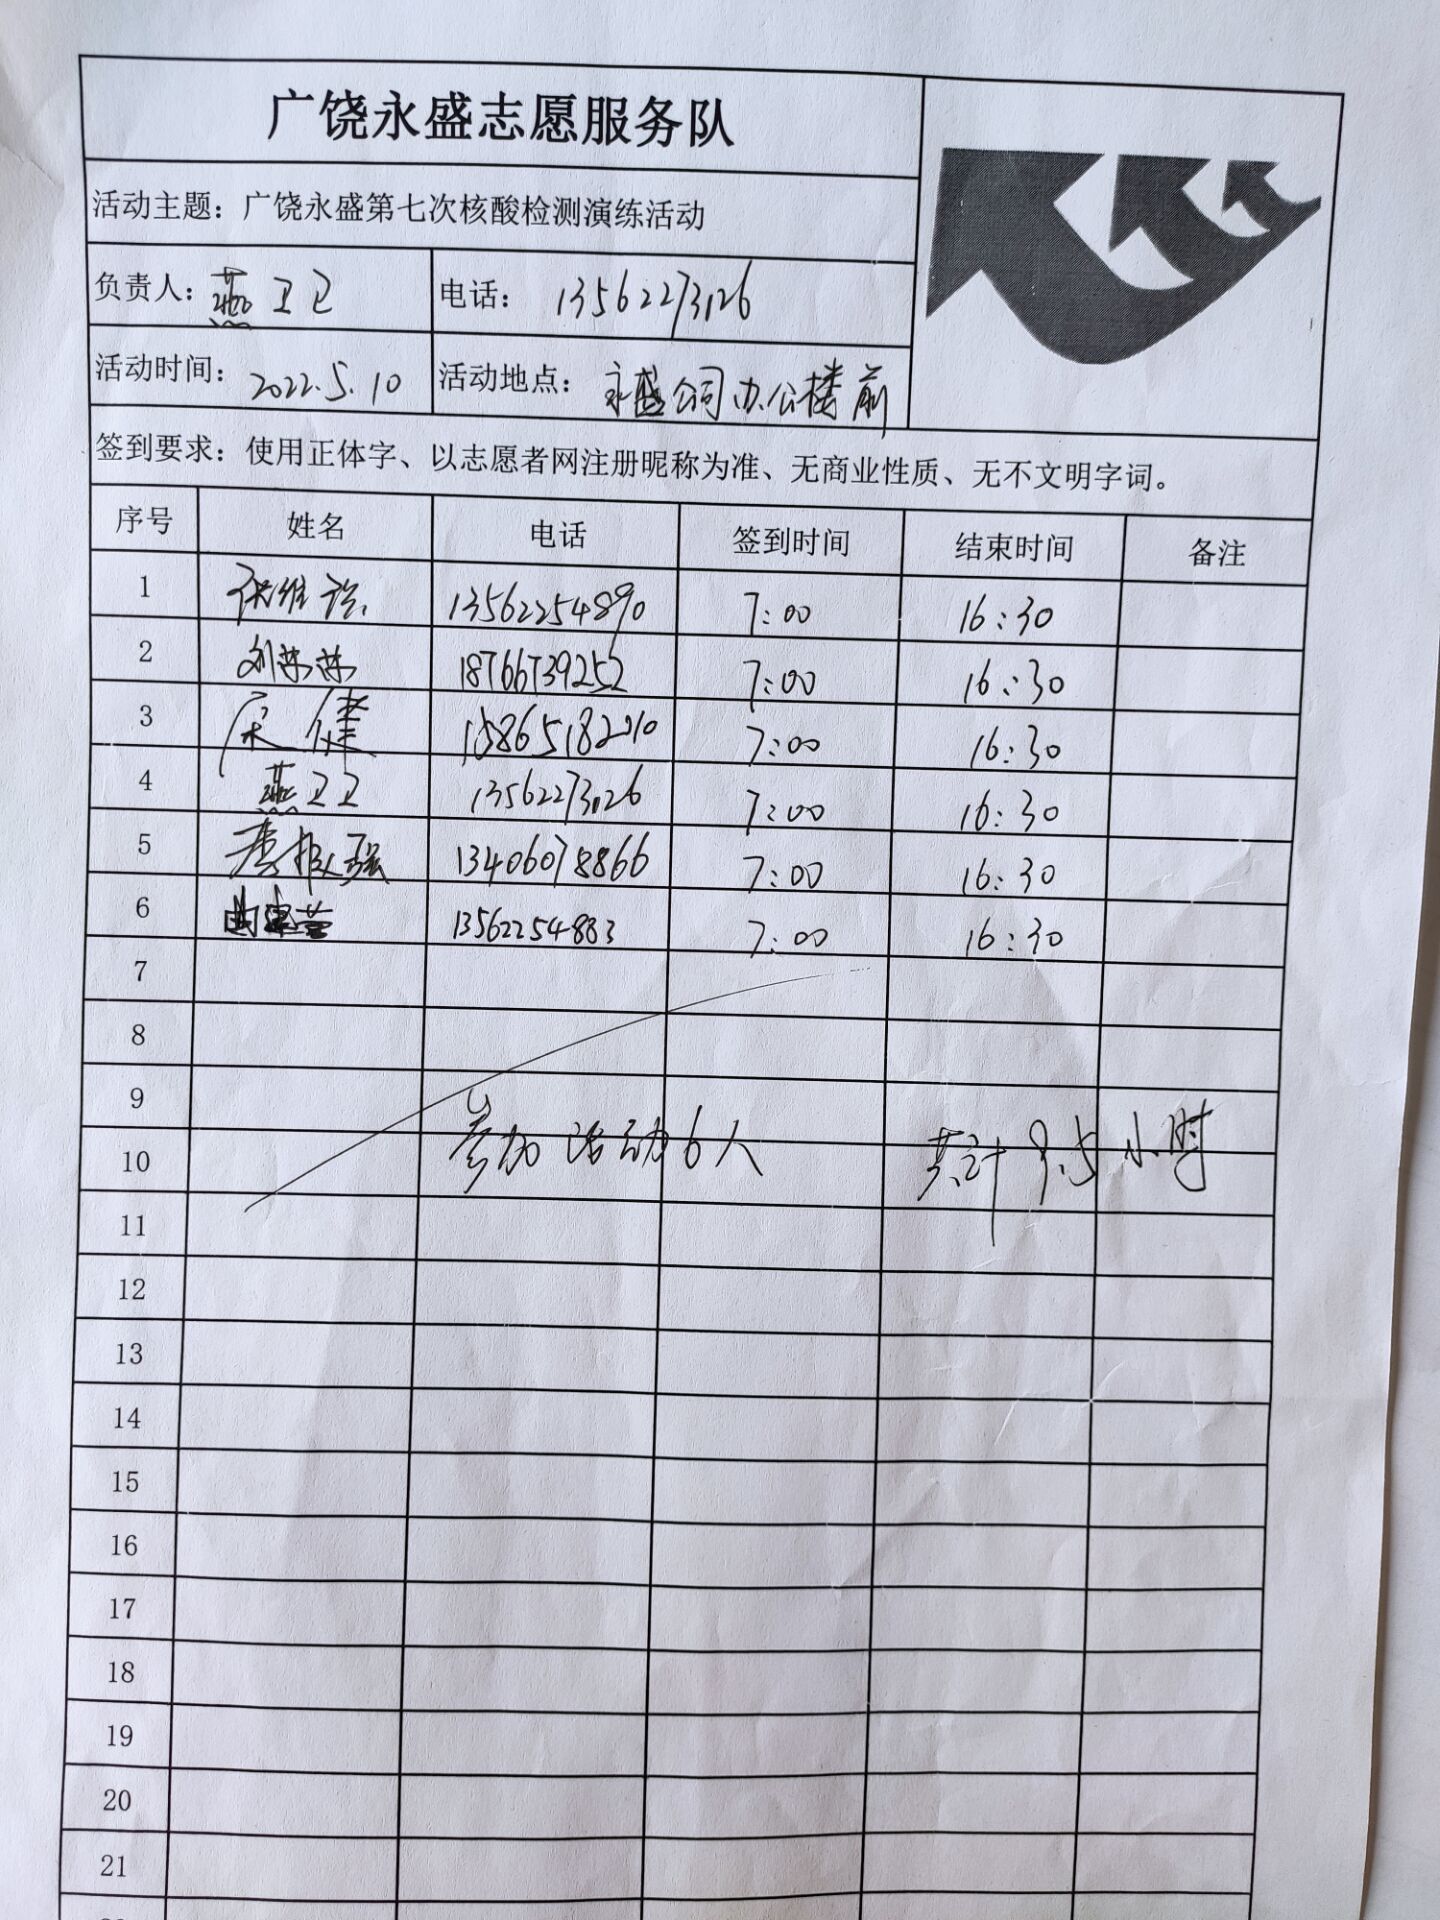 广饶永盛志愿服务队
活动主题：广饶永盛第七次核酸检测演练活动
负责人：燕卫卫 电话：13562273126
活动时间：2022.5.10 活动地点：永盛公司办公楼前
签到要求：使用正体字、以志愿者网注册昵称为准、无商业性质、无不文明字词。
序号 姓名 电话 签到时间 结束时间 备注
1 13562254890 7:00 16:30
2 18766739252 7:00 16:30
3 15865182010 7:00 16:30
4 燕卫卫 13562273126 7:00 16:30
5 李振强 13406078866 7:00 16:30
6 13562254883 7:00 16:30
7
8
9
10 参加活动6人 共计9.5小时
11
12
13
14
15
16
17
18
19
20
21